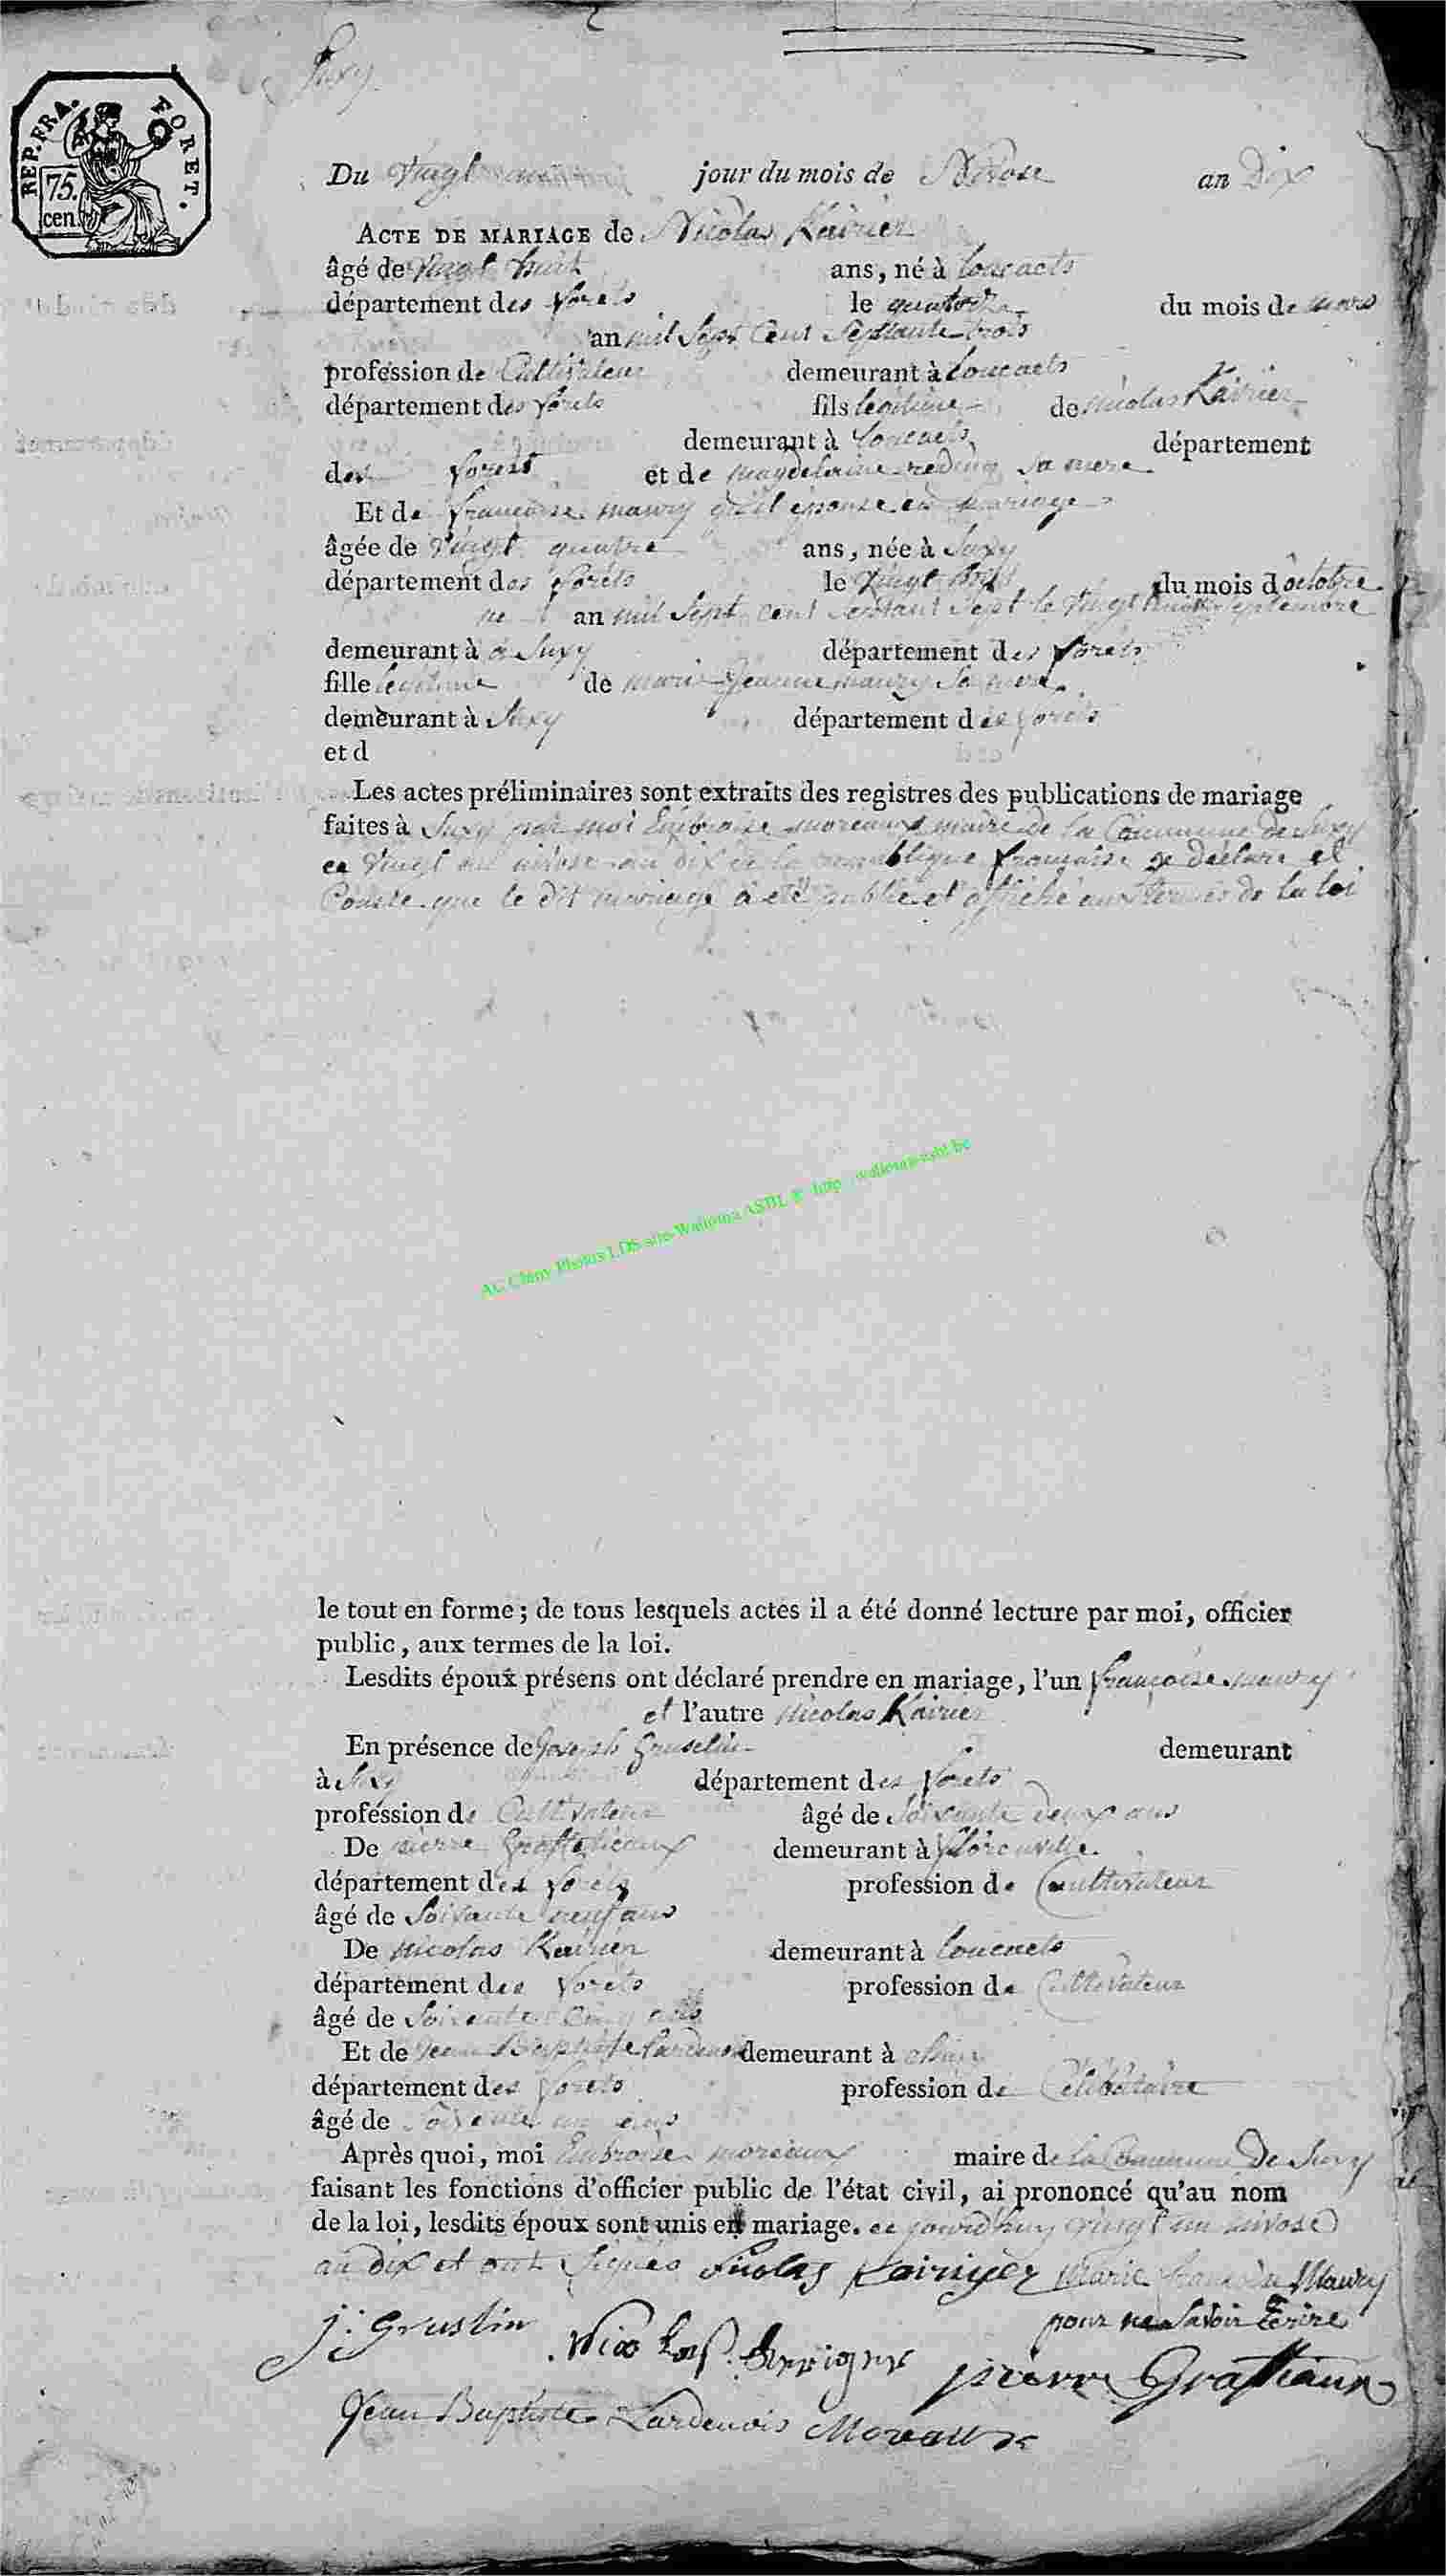 Suxy
REP. FRA. FORET.
75. cen.
Du Vingt jour du mois de Nivose an Dix
ACTE DE MARIAGE de Nicolas Kairier
âgé de Vingt huit ans, né à
département des forets le quatorze du mois de mars
an mil Sept Cent Septante trois
profession de Cultivateur demeurant à
département des forets fils legitime de nicolas Kairier
demeurant à département
des forets et de magdelaine reding sa mere
Et de françoise maury qu'il épouse en mariage
âgée de Vingt quatre ans, née à Suxy
département des forets le Vingt du mois d'octobre
an mil Sept cent septant sept le Vingt septembre
demeurant à a Suxy département des forets
fille legitime de marie Jeanne maury Sa mere
demeurant à Suxy département des forets
et d
Les actes préliminaires sont extraits des registres des publications de mariage
faites à Suxy par moi moreaux maire de la Commune de Suxy
ce Vingt un nivose an dix de la republique française je déclare et
que le dit mariage a eté publié et affiché aux termes de la loi
AC Chiny Photos LDS asbl Wallonia ASBL
le tout en forme ; de tous lesquels actes il a été donné lecture par moi, officier
public, aux termes de la loi.
Lesdits époux présens ont déclaré prendre en mariage, l'un françoise maury
et l'autre nicolas Kairier
En présence de Joseph demeurant
à Suxy département des forets
profession de Cultivateur âgé de Soixante deux ans
De pierre demeurant à florenville
département des forets profession de Cultivateur
âgé de Soixante neuf ans
De nicolas Kairier demeurant à
département des forets profession de Cultivateur
âgé de Soixante Cinq ans
Et de Jean Baptiste Lardenois demeurant à chiny
département des forets profession de Célibataire
âgé de Soixante ans
Après quoi, moi moreaux maire de la Commune De Suxy
faisant les fonctions d'officier public de l'état civil, ai prononcé qu'au nom
de la loi, lesdits époux sont unis en mariage. ce jourd'huy vingt un nivose
an dix et ont signés nicolas Marie françoise Maury
pour ne Savoir Ecrire
j: Grustin
pierre
Jean Baptiste Lardenois Moreaux